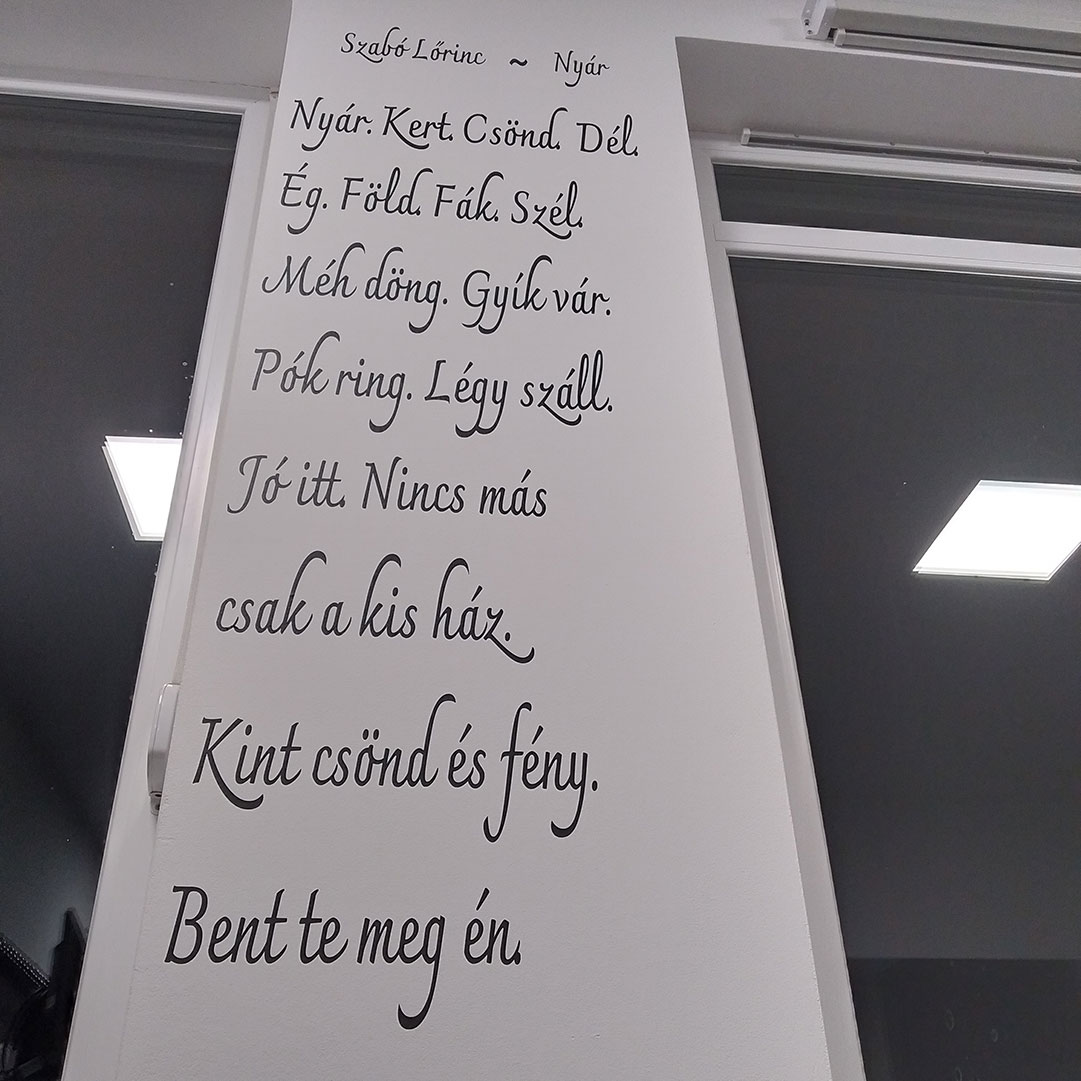 Szabó Lőrinc ~ Nyár
Nyár. Kert. Csönd. Dél.
Ég. Föld. Fák. Szél.
Méh döng. Gyík vár.
Pók ring. Légy száll.
Jó itt. Nincs más
csak a kis ház.
Kint csönd és fény.
Bent te meg én.